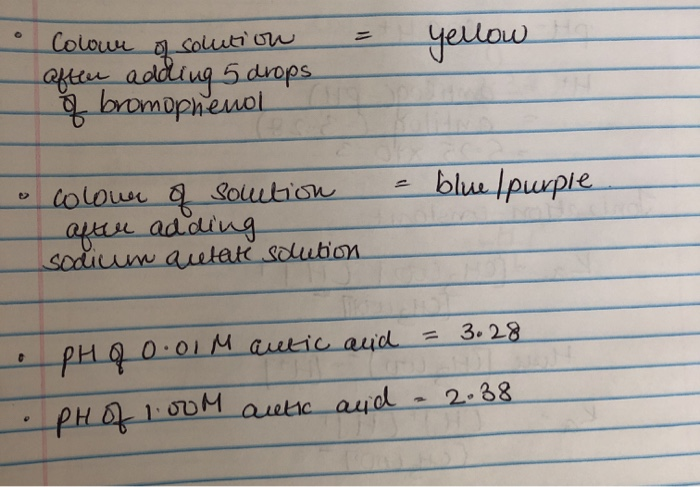 • Colour of solution = yellow
after adding 5 drops
of bromophenol
• colour of solution = blue/purple
after adding
sodium acetate solution
• pH of 0.01M acetic acid = 3.28
• pH of 1.00M acetic acid = 2.38